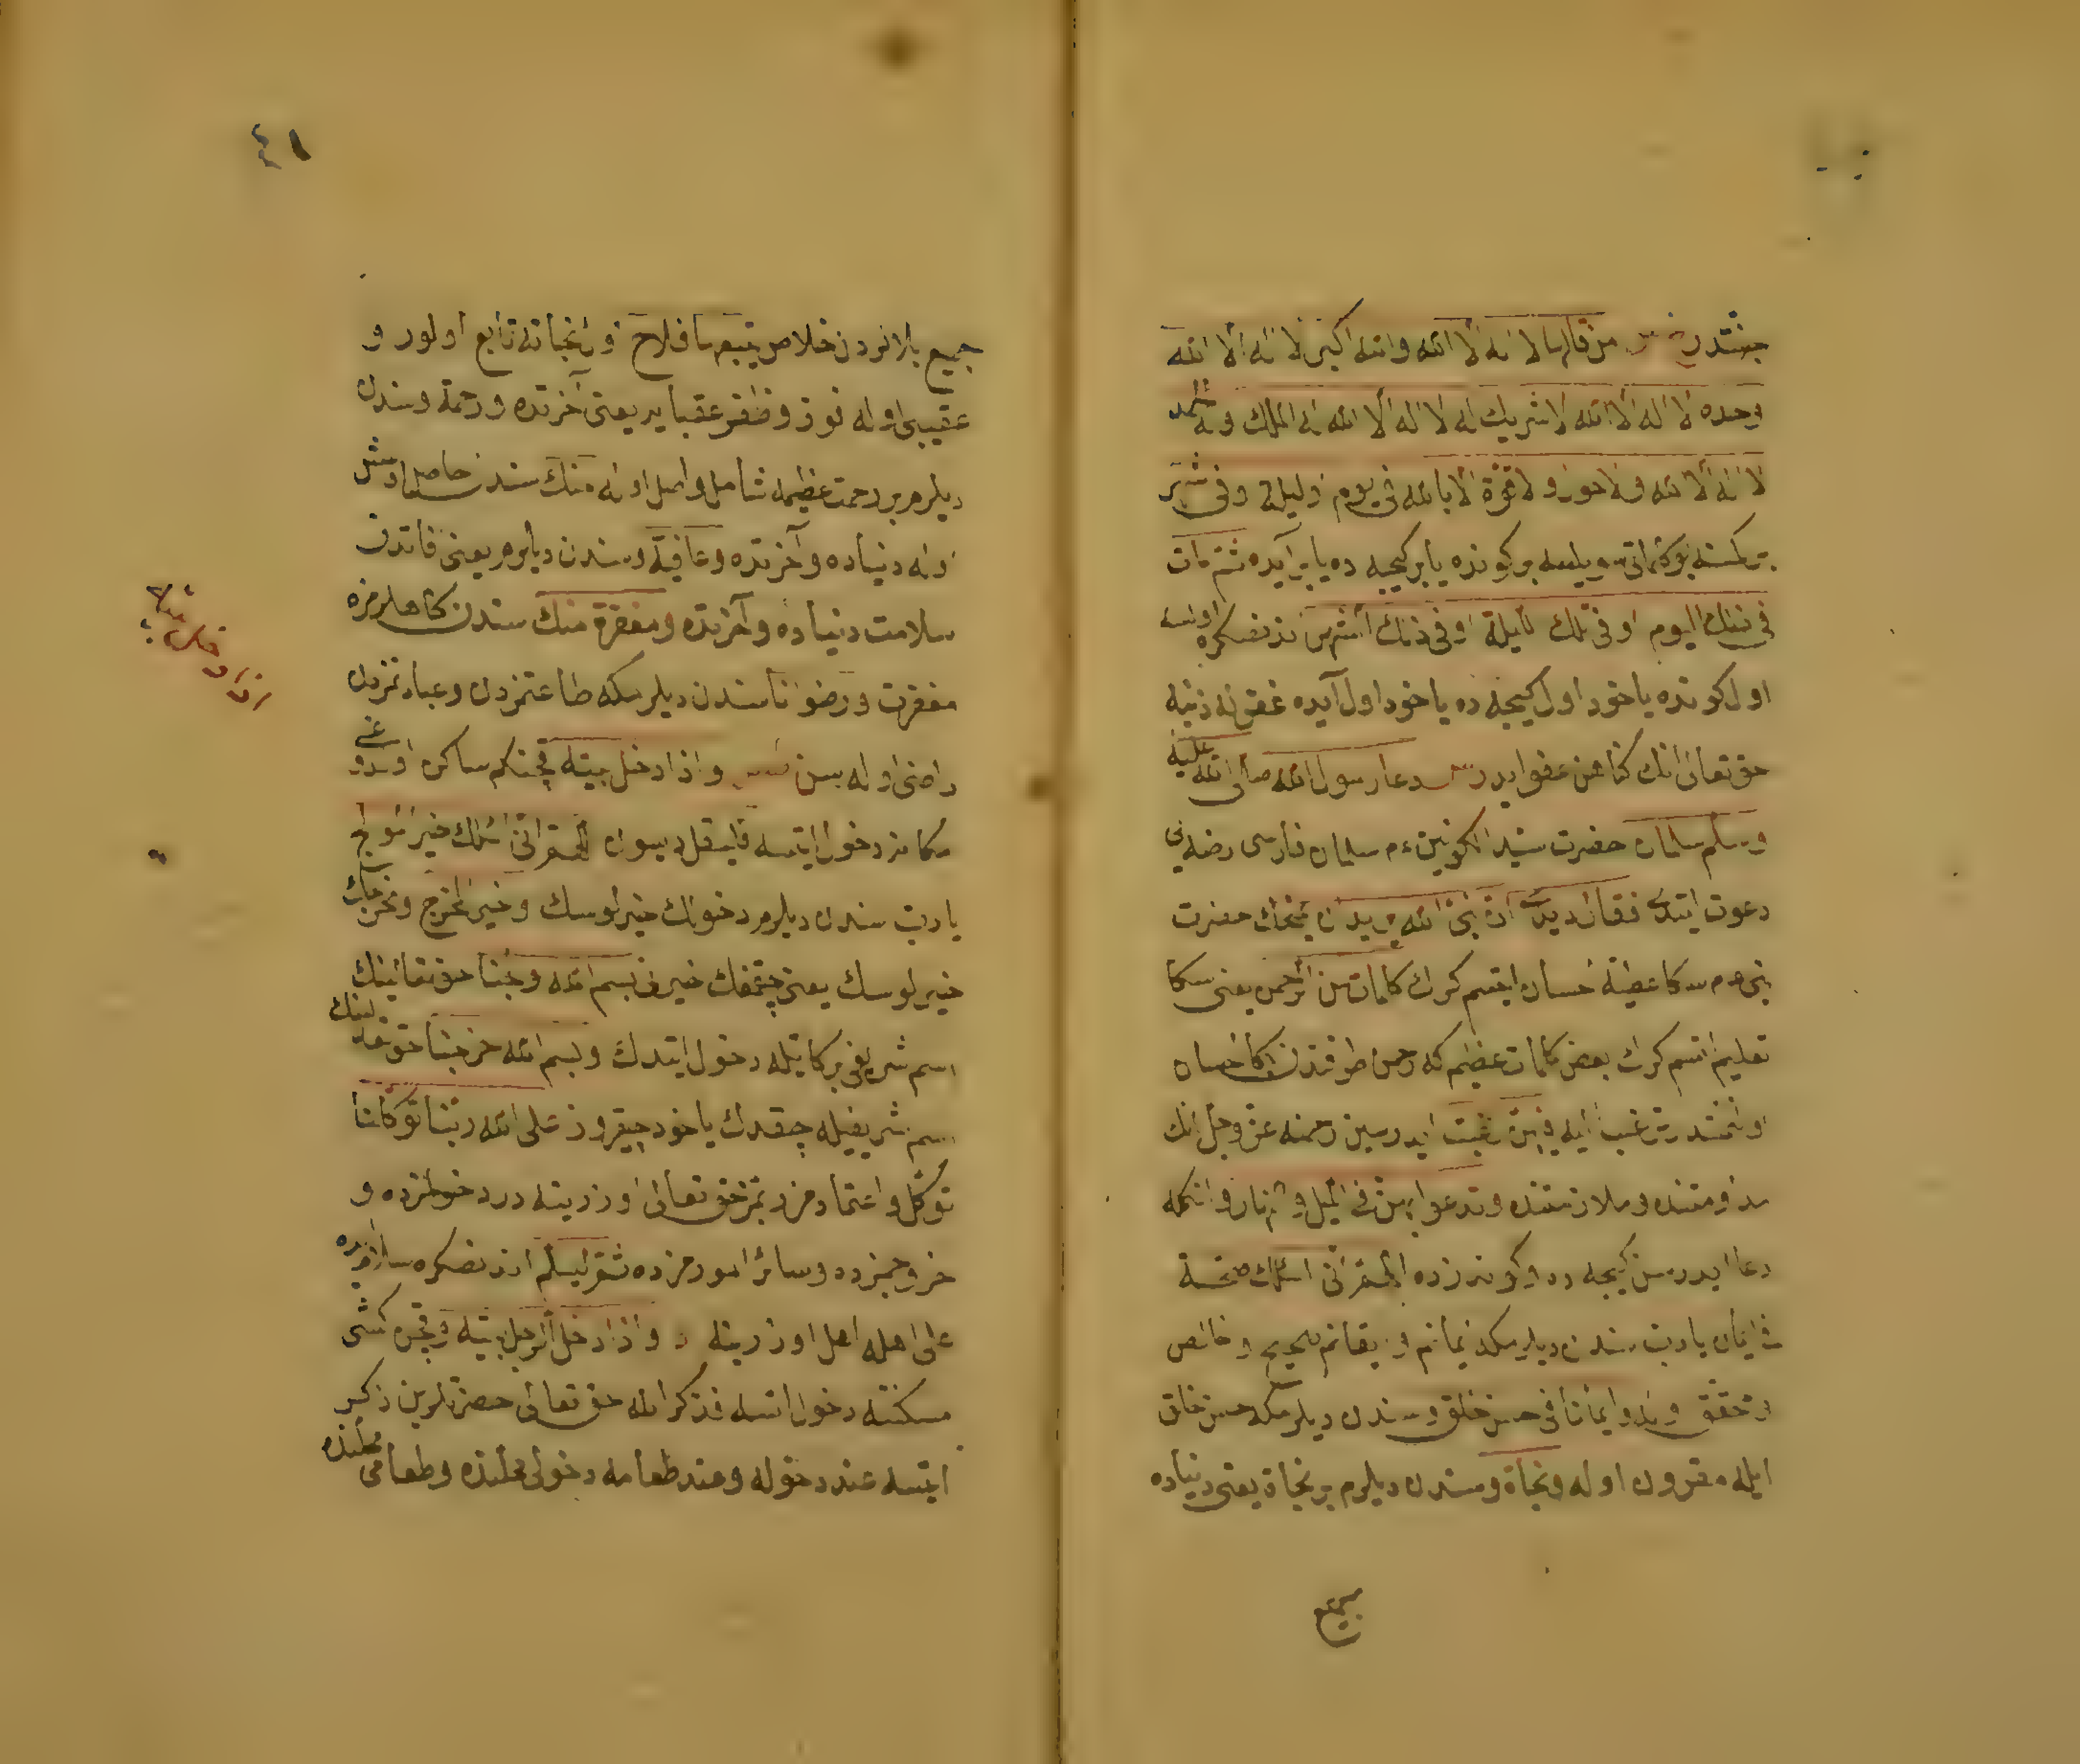 جنتدر من قالها لا اله الا الله والله اكبر لا اله الا الله
وحده لا اله الا الله لا شريك له لا اله الا الله له الملك وله الحمد
لا اله الا الله ولا حول ولا قوة الا بالله فى يوم او ليلة او فى شهر
بر كمسنه بو كلماتى سويلسه بر كونده يا بر كيجه ده يا بر آيده ثم مات
فى ذلك اليوم او فى تلك الليلة او فى ذلك الشهر اندنصكره اولسه
اول كونده ياخود اول كيجه ده ياخود اول آيده غفر له ذنبه
حق تعالى انك كناهن عفو ايدر دعا رسول الله صلى الله عليه
وسلم سلمان حضرت سيد الكونين ءم سلمان فارسى رضه يى
دعوت ايتدى فقال ديدى ان نبى الله يريد ان يمنحك حضرت
نبى ءم سكا عطيه احسان ايتسم كرك كلمات من الرحمن يعنى سكا
تعليم اتسم كرك بعض كلمات عظيم كه رحمن طرفندن بكا احسان
اولنمشدر ترغب اليه فيهن رغبت ايدرسين رحمنه عز وجل انك
مداومتنده وملازمتنده وتدعو بهن فى الليل والنهار وانكله
دعا ايدرسن كيجه ده وكوندزده اللهم انى اسئلك صحة
فى ايمان يا رب سندن ديلرمكه ايمانم وايقانم صحيح وخالص
ومحقق اوله وايمانا فى حسن خلق وسندن ديلرمكه حسن خلق
ايله مقرون اوله ونجاة وسندن ديلرم بر نجاة يعنى دنياده
جميع
٤١
جميع بلالردن خلاص يتبعها فلاح اول نجاته تابع اولور و
عقيبى اوله فوز وظفر عقبا ير يعنى آخرتده ورحمة وسندن
ديلرم بر رحمت عظيمه شامل واصل اوله منك سندن حاصل اولمش
اوله دنياده وآخرتده وعافية وسندن ديلرم يعنى قاتدن
سلامت دنياده وآخرتده ومغفرة منك سندن كناهلرمزه
مغفرت ورضوانا سندن ديلرمكه طاعتمزدن وعبادتمزدن
راضى اوله سن واذا دخل بيته قچنكم ساكن اولدوغى
مكانه دخول ايتسه فليقل ديسون اللهم انى اسئلك خير المولج
يا رب سندن ديلرم دخولك خيرلوسك وخير المخرج ومخرجك
خيرلوسك يعنى چقمقلك خيرن بسم الله ولجنا حق تعالينك
اسم شريفى بركاتيله دخول ايتدك وبسم الله خرجنا حق تعالينك
اسم شريفيله چقدك ياخود چيقروز على الله ربنا توكلنا
توكل واعتمادمز ربمز حق تعالى اوزرينه در دخولمزده و
خروجمزده وسائر امورمزده ثم ليسلم اندنصكره سلام ويره
على اهله اهل اوزرينه واذا دخل الرجل بيته قچن كشى
مسكننه دخول اتسه فذكر الله حق تعالى حضرتلرين ذكر
ايتسه عند دخوله وعند طعامه دخولى محلنده وطعامى محلنده